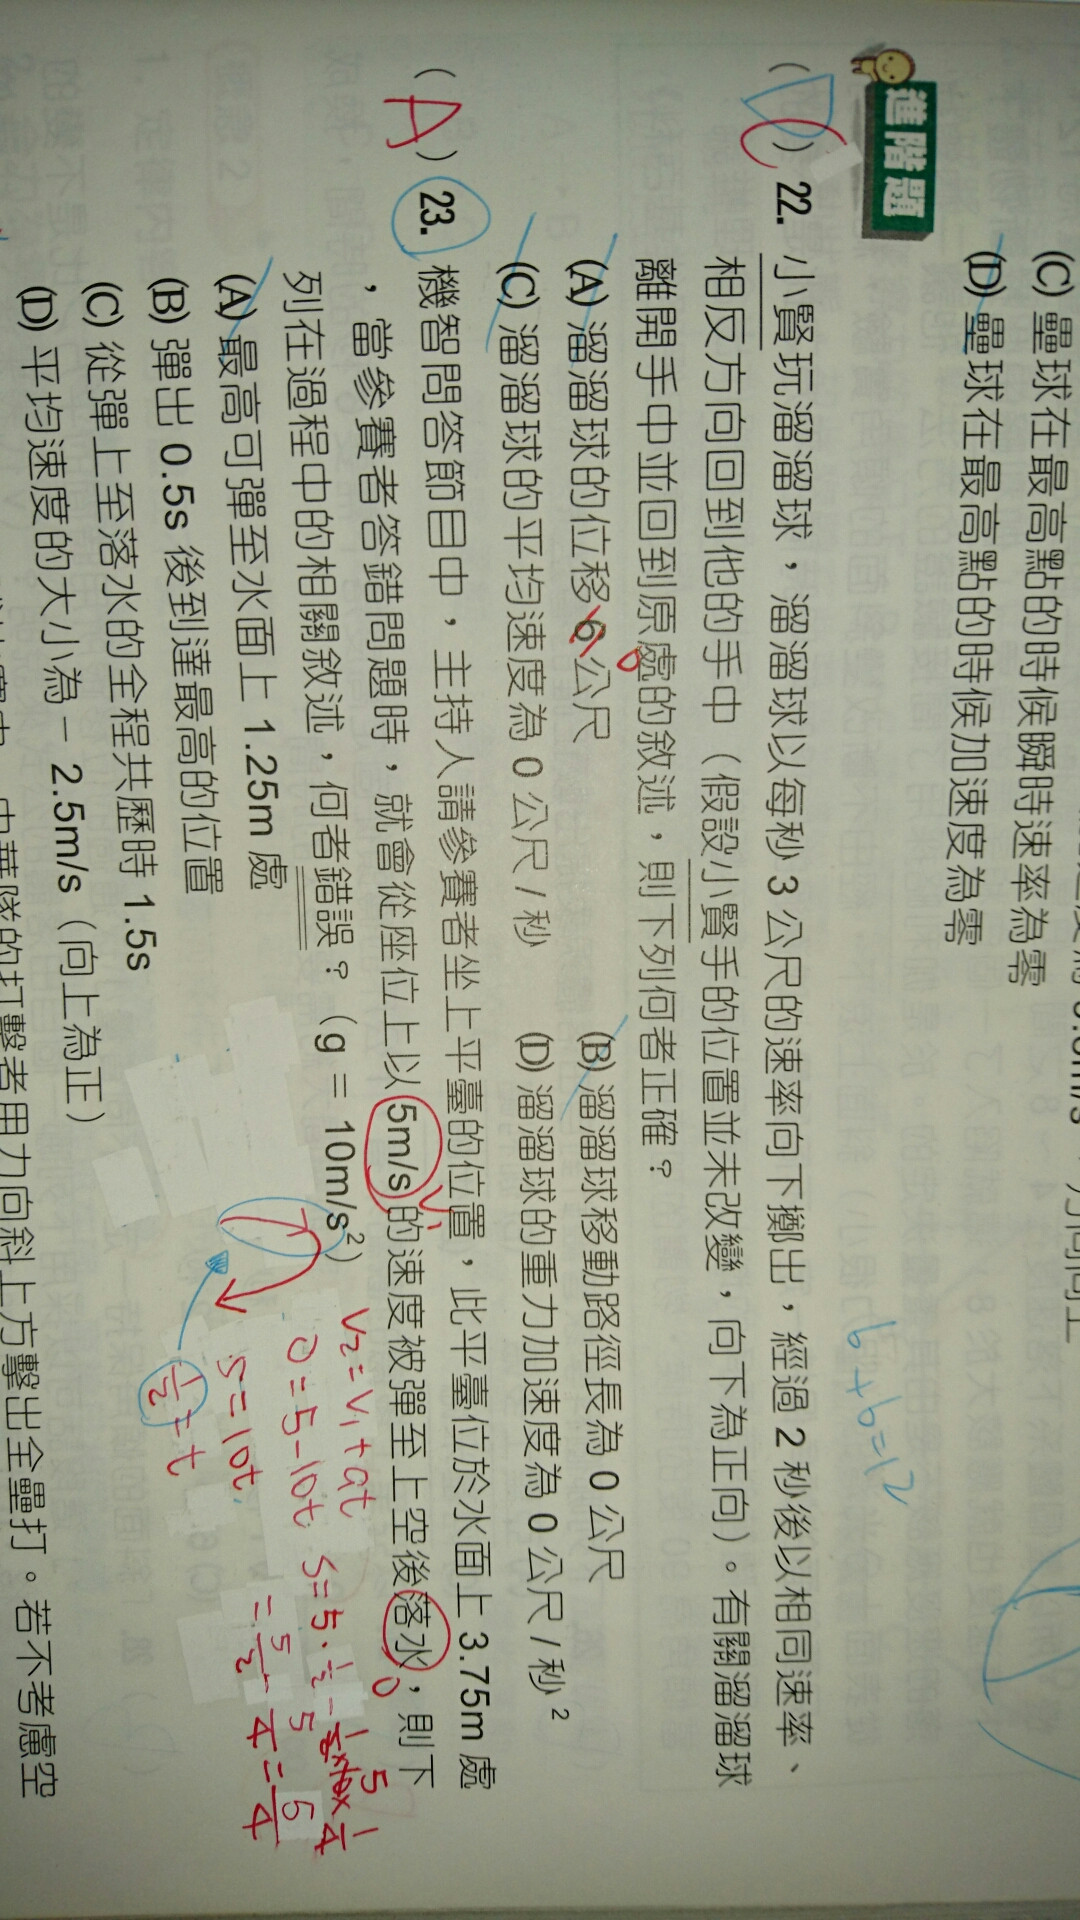 (C) 壘球在最高點的時候瞬時速率為零
(D) 壘球在最高點的時候加速度為零
進階題
22. 小賢玩溜溜球，溜溜球以每秒 3 公尺的速率向下擲出，經過 2 秒後以相同速率、
相反方向回到他的手中（假設小賢手的位置並未改變，向下為正向）。有關溜溜球
離開手中並回到原處的敘述，則下列何者正確？
(A) 溜溜球的位移 6 公尺 0
(B) 溜溜球移動路徑長為 0 公尺
(C) 溜溜球的平均速度為 0 公尺 / 秒
(D) 溜溜球的重力加速度為 0 公尺 / 秒²
6+6=12
(A) 23. 機智問答節目中，主持人請參賽者坐上平臺的位置，此平臺位於水面上 3.75m 處
，當參賽者答錯問題時，就會從座位上以 5m/s 的速度被彈至上空後落水，則下
列在過程中的相關敘述，何者錯誤？（g = 10m/s²）
(A) 最高可彈至水面上 1.25m 處
(B) 彈出 0.5s 後到達最高的位置
(C) 從彈上至落水的全程共歷時 1.5s
(D) 平均速度的大小為 − 2.5m/s（向上為正）
V₁
0
V₂=V₁+at
0=5-10t
5=10t
½=t
=5/2-5/4=5/4
中華隊的打擊者用力向斜上方擊出全壘打。若不考慮空